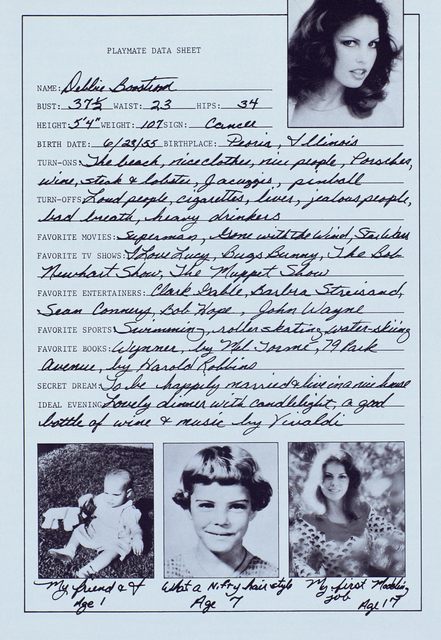 PLAYMATE DATA SHEET
NAME: Debbie Boostrom
BUST: 37½ WAIST: 23 HIPS: 34
HEIGHT: 5'4" WEIGHT: 107 SIGN: Cancer
BIRTH DATE: 6/28/55 BIRTHPLACE: Peoria, Illinois
TURN-ONS: The beach, nice clothes, nice people, Porsches,
wine, steak & lobster, Jacuzzis, pinball
TURN-OFFS: Loud people, cigarettes, liver, jealous people,
bad breath, heavy drinkers
FAVORITE MOVIES: Superman, Gone with the Wind, Star Wars
FAVORITE TV SHOWS: I Love Lucy, Bugs Bunny, The Bob
Newhart Show, The Muppet Show
FAVORITE ENTERTAINERS: Clark Gable, Barbra Streisand,
Sean Connery, Bob Hope, John Wayne
FAVORITE SPORTS: Swimming, roller skating, water-skiing
FAVORITE BOOKS: Wynner, by Mel Tormé, 79 Park
Avenue, by Harold Robbins
SECRET DREAM: To be happily married & live in a nice house
IDEAL EVENING: Lovely dinner with candlelight, a good
bottle of wine & music by Vivaldi
My friend & I
Age 1
What a Nifty hair style
Age 7
My first Modeling
job Age 17